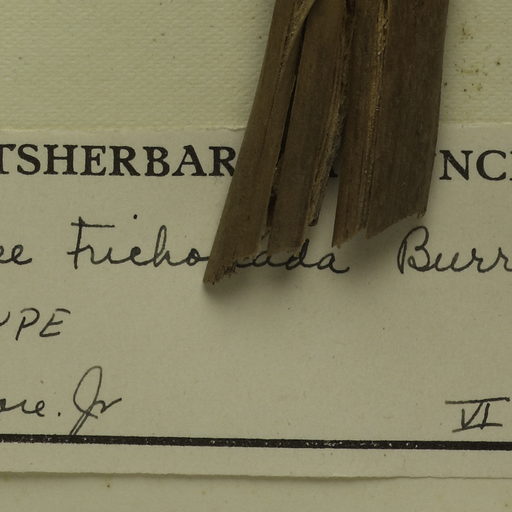 TSHERBAR NC
ee Tricho ada Burr
UPE
ore. Jr
VI